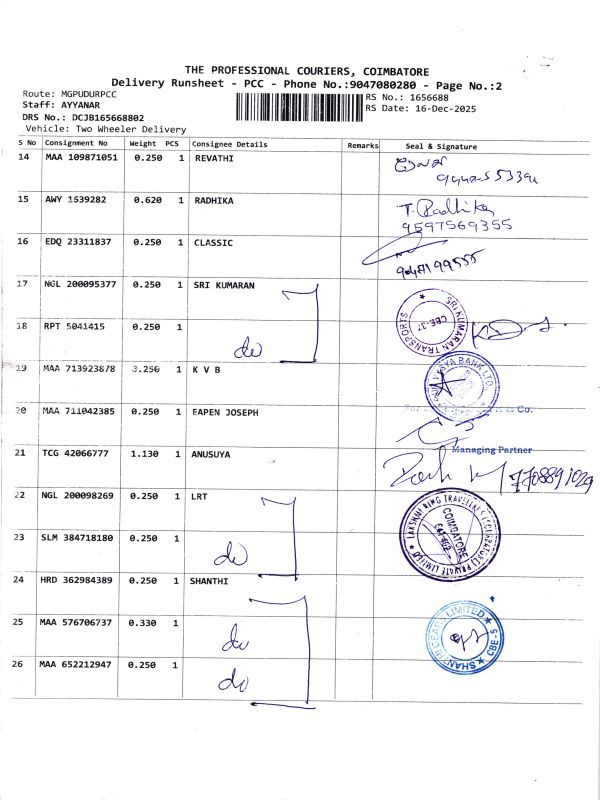 THE PROFESSIONAL COURIERS, COIMBATORE
Delivery Runsheet - PCC - Phone No.:9047080280 - Page No.:2
Route: MGPUDURPCC
Staff: AYYANAR
DRS No.: DCJB165668802
Vehicle: Two Wheeler Delivery
RS No.: 1656688
RS Date: 16-Dec-2025
S No Consignment No Weight PCS Consignee Details Remarks Seal & Signature
14 MAA 109871051 0.250 1 REVATHI
15 AWY 1639282 0.620 1 RADHIKA T. Radhika
9597569355
16 EDQ 23311837 0.250 1 CLASSIC
17 NGL 200095377 0.250 1 SRI KUMARAN SRI KUMARAN TRANSPORTS CBE-37
18 RPT 5041415 0.250 1 do
19 MAA 713923878 3.250 1 K V B
20 MAA 711042385 0.250 1 EAPEN JOSEPH & Co.
Managing Partner
21 TCG 42066777 1.130 1 ANUSUYA 7708891029
22 NGL 200098269 0.250 1 LRT COIMBATORE
23 SLM 384718180 0.250 1 do
24 HRD 362984389 0.250 1 SHANTHI SHANTHI GEARS LIMITED CBE-5
25 MAA 576706737 0.330 1 do
26 MAA 652212947 0.250 1 do